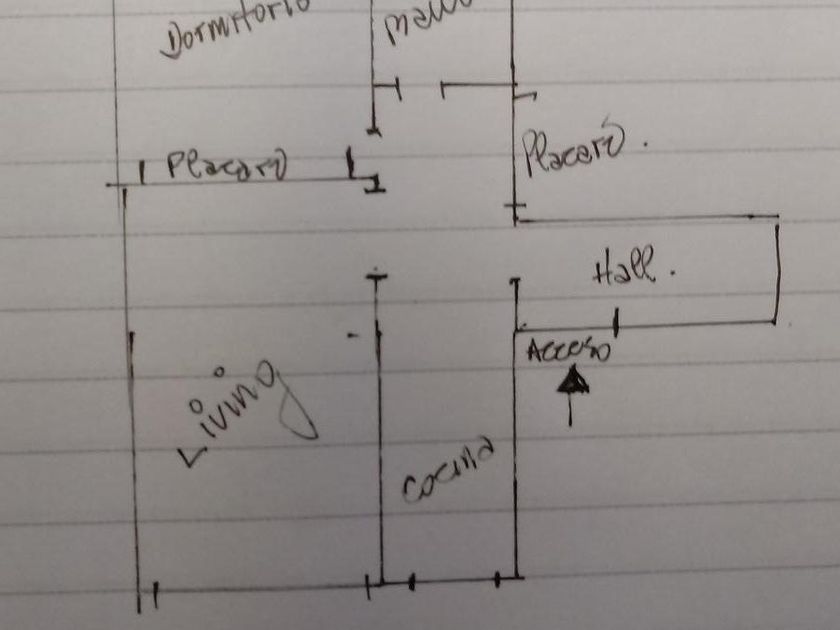 Dormitorio
Placard
Placard.
Hall.
Acceso
Living
Cocina